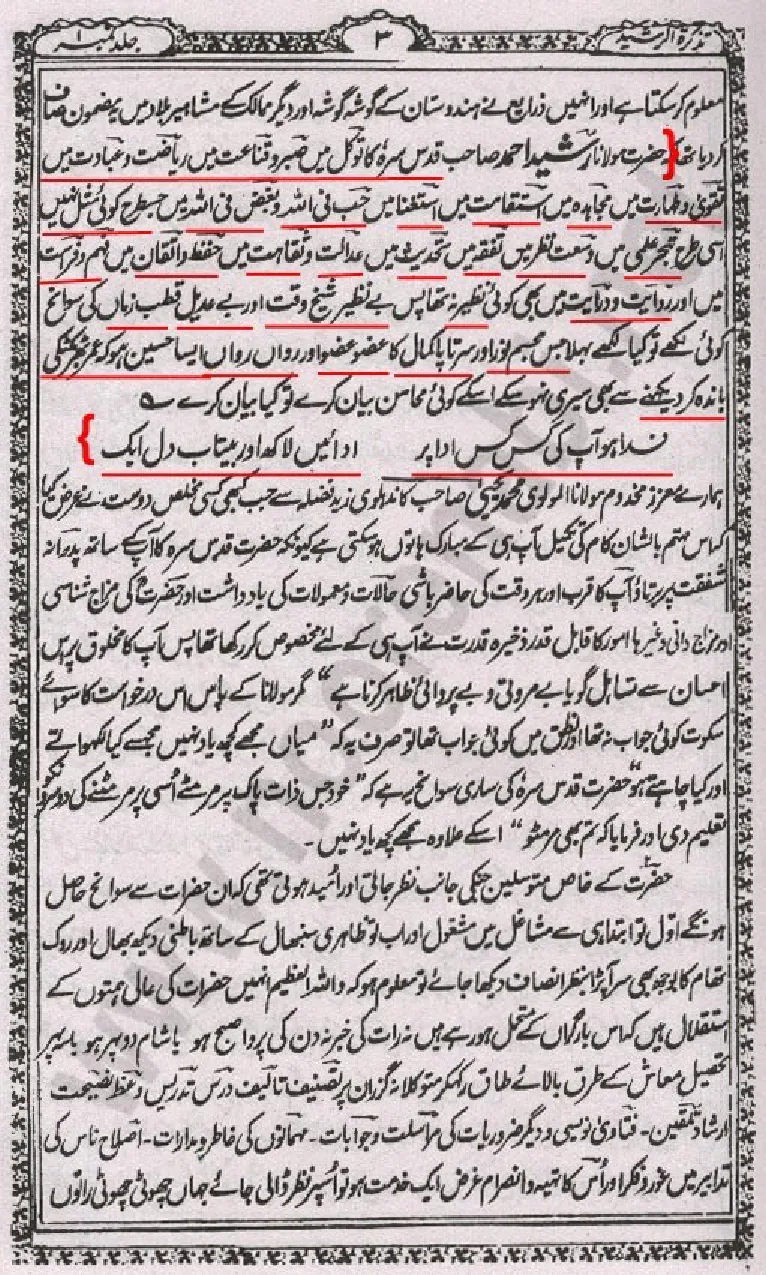 تذکرۃ الرشید ۳ جلد نمبر ۱
معلوم کرسکتا ہے اور انہیں ذرایع نے ہندوستان کے گوشہ گوشہ اور دیگر ممالک کے مشاہیر بلاد میں یہ مضمون صاف
کردیا تھا کہ حضرت مولانا رشید احمد صاحب قدس سرہٗ کا توکل میں صبر و قناعت میں ریاضت و عبادت میں
تقویٰ و طہارت میں مجاہدہ میں استقامت میں استغنا میں حب فی اللہ و بغض فی اللہ میں جسطرح کوئی مثل نہیں
اسی طرح تبحر علمی میں وسعت نظر میں تفقہ میں تحدیث میں عدالت و ثقاہت میں حفظ و اتقان میں فہم و فراست
میں اور روایت و درایت میں بھی کوئی نظیر نہ تھا پس بے نظیر شیخ وقت اور بے عدیل قطب زماں کی سوانح
کوئی لکھے تو کیا لکھے بھلا جس مجسم نور اور سرتاپا کمال کا عضو عضو اور رواں رواں ایسا حسین ہو کہ عمر بھر ٹکٹکی
باندہ کر دیکھنے سے بھی سیری نہو سکے اسکے کوئی محاسن بیان کرے تو کیا بیان کرے ؎
فدا ہو آپ کی کس کس ادا پر ادائیں لاکھ اور بیتاب دل ایک
ہمارے معزز مخدوم مولانا المولوی محمد یحییٰ صاحب کاندہلوی زید فضلہ سے جب کبھی کسی مخلص دوست نے عرض کیا
کہ اس مہتم بالشان کام کی تکمیل آپ ہی کے مبارک ہاتوں ہوسکتی ہے کیونکہ حضرت قدس سرہ کا آپکے ساتھ پدرانہ
شفقت پر برتاؤ آپ کا قرب اور ہر وقت کی حاضر باشی حالات و معمولات کی یادداشت اور حضرت کی مزاج شناسی
اور مزاج دانی وغیرہا امور کا قابل قدر ذخیرہ قدرت نے آپ ہی کے لئے مخصوص کر رکھا تھا پس آپ کا مخلوق پر اس
احسان سے تساہل گویا بے مروتی و بے پروائی ظاہر کرنا ہے“ مگر مولانا کے پاس اس درخواست کا سوائے
سکوت کوئی جواب نہ تھا اور نطق میں کوئی جواب تھا تو صرف یہ کہ ”میاں مجھے کچھ یاد نہیں مجھسے کیا لکھواتے
اور کیا چاہتے ہو“ حضرت قدس سرہ کی ساری سوانح یہ ہے کہ ”خود جس ذات پاک پر مر مٹے اُسی پر مر مٹنے کی دوسروں کو
تعلیم دی اور فرمایا کہ تم بھی مرمٹو“ اسکے علاوہ مجھے کچھ یاد نہیں۔
حضرت کے خاص متوسلین جنکی جانب نظر جاتی اور امید ہوتی تھی کہ ان حضرات سے سوانح حاصل
ہونگے اول تو ابتدا ہی سے مشاغل میں مشغول اور اب تو ظاہری سنبھال کے ساتھ باطنی دیکھ بھال اور روک
تھام کا بوجھ بھی سر آپڑا بنظر انصاف دیکھا جائے تو معلوم ہو کہ واللہ العظیم انہیں حضرات کی عالی ہمتوں کے
استقلال ہیں کہ اس بارگراں کے متحمل ہو رہے ہیں نہ رات کی خبر نہ دن کی پروا صبح ہو یا شام دوپہر ہو یا سہ پہر
تحصیل معاش کے طرق بالائے طاق رکھکر متوکلانہ گزران پر تصنیف تالیف درس تدریس وعظ نصیحت
ارشاد تلقین۔ فتاویٰ نویسی و دیگر ضروریات کی مراسلت و جوابات۔ مہمانوں کی خاطر و مدارات۔ اصلاح ناس کی
تدابیر میں غور و فکر اور اُس کا تہیہ و انصرام غرض ایک خدمت ہو تو اُسپر نظر ڈالی جائے جہاں چھوٹی چھوٹی راتوں